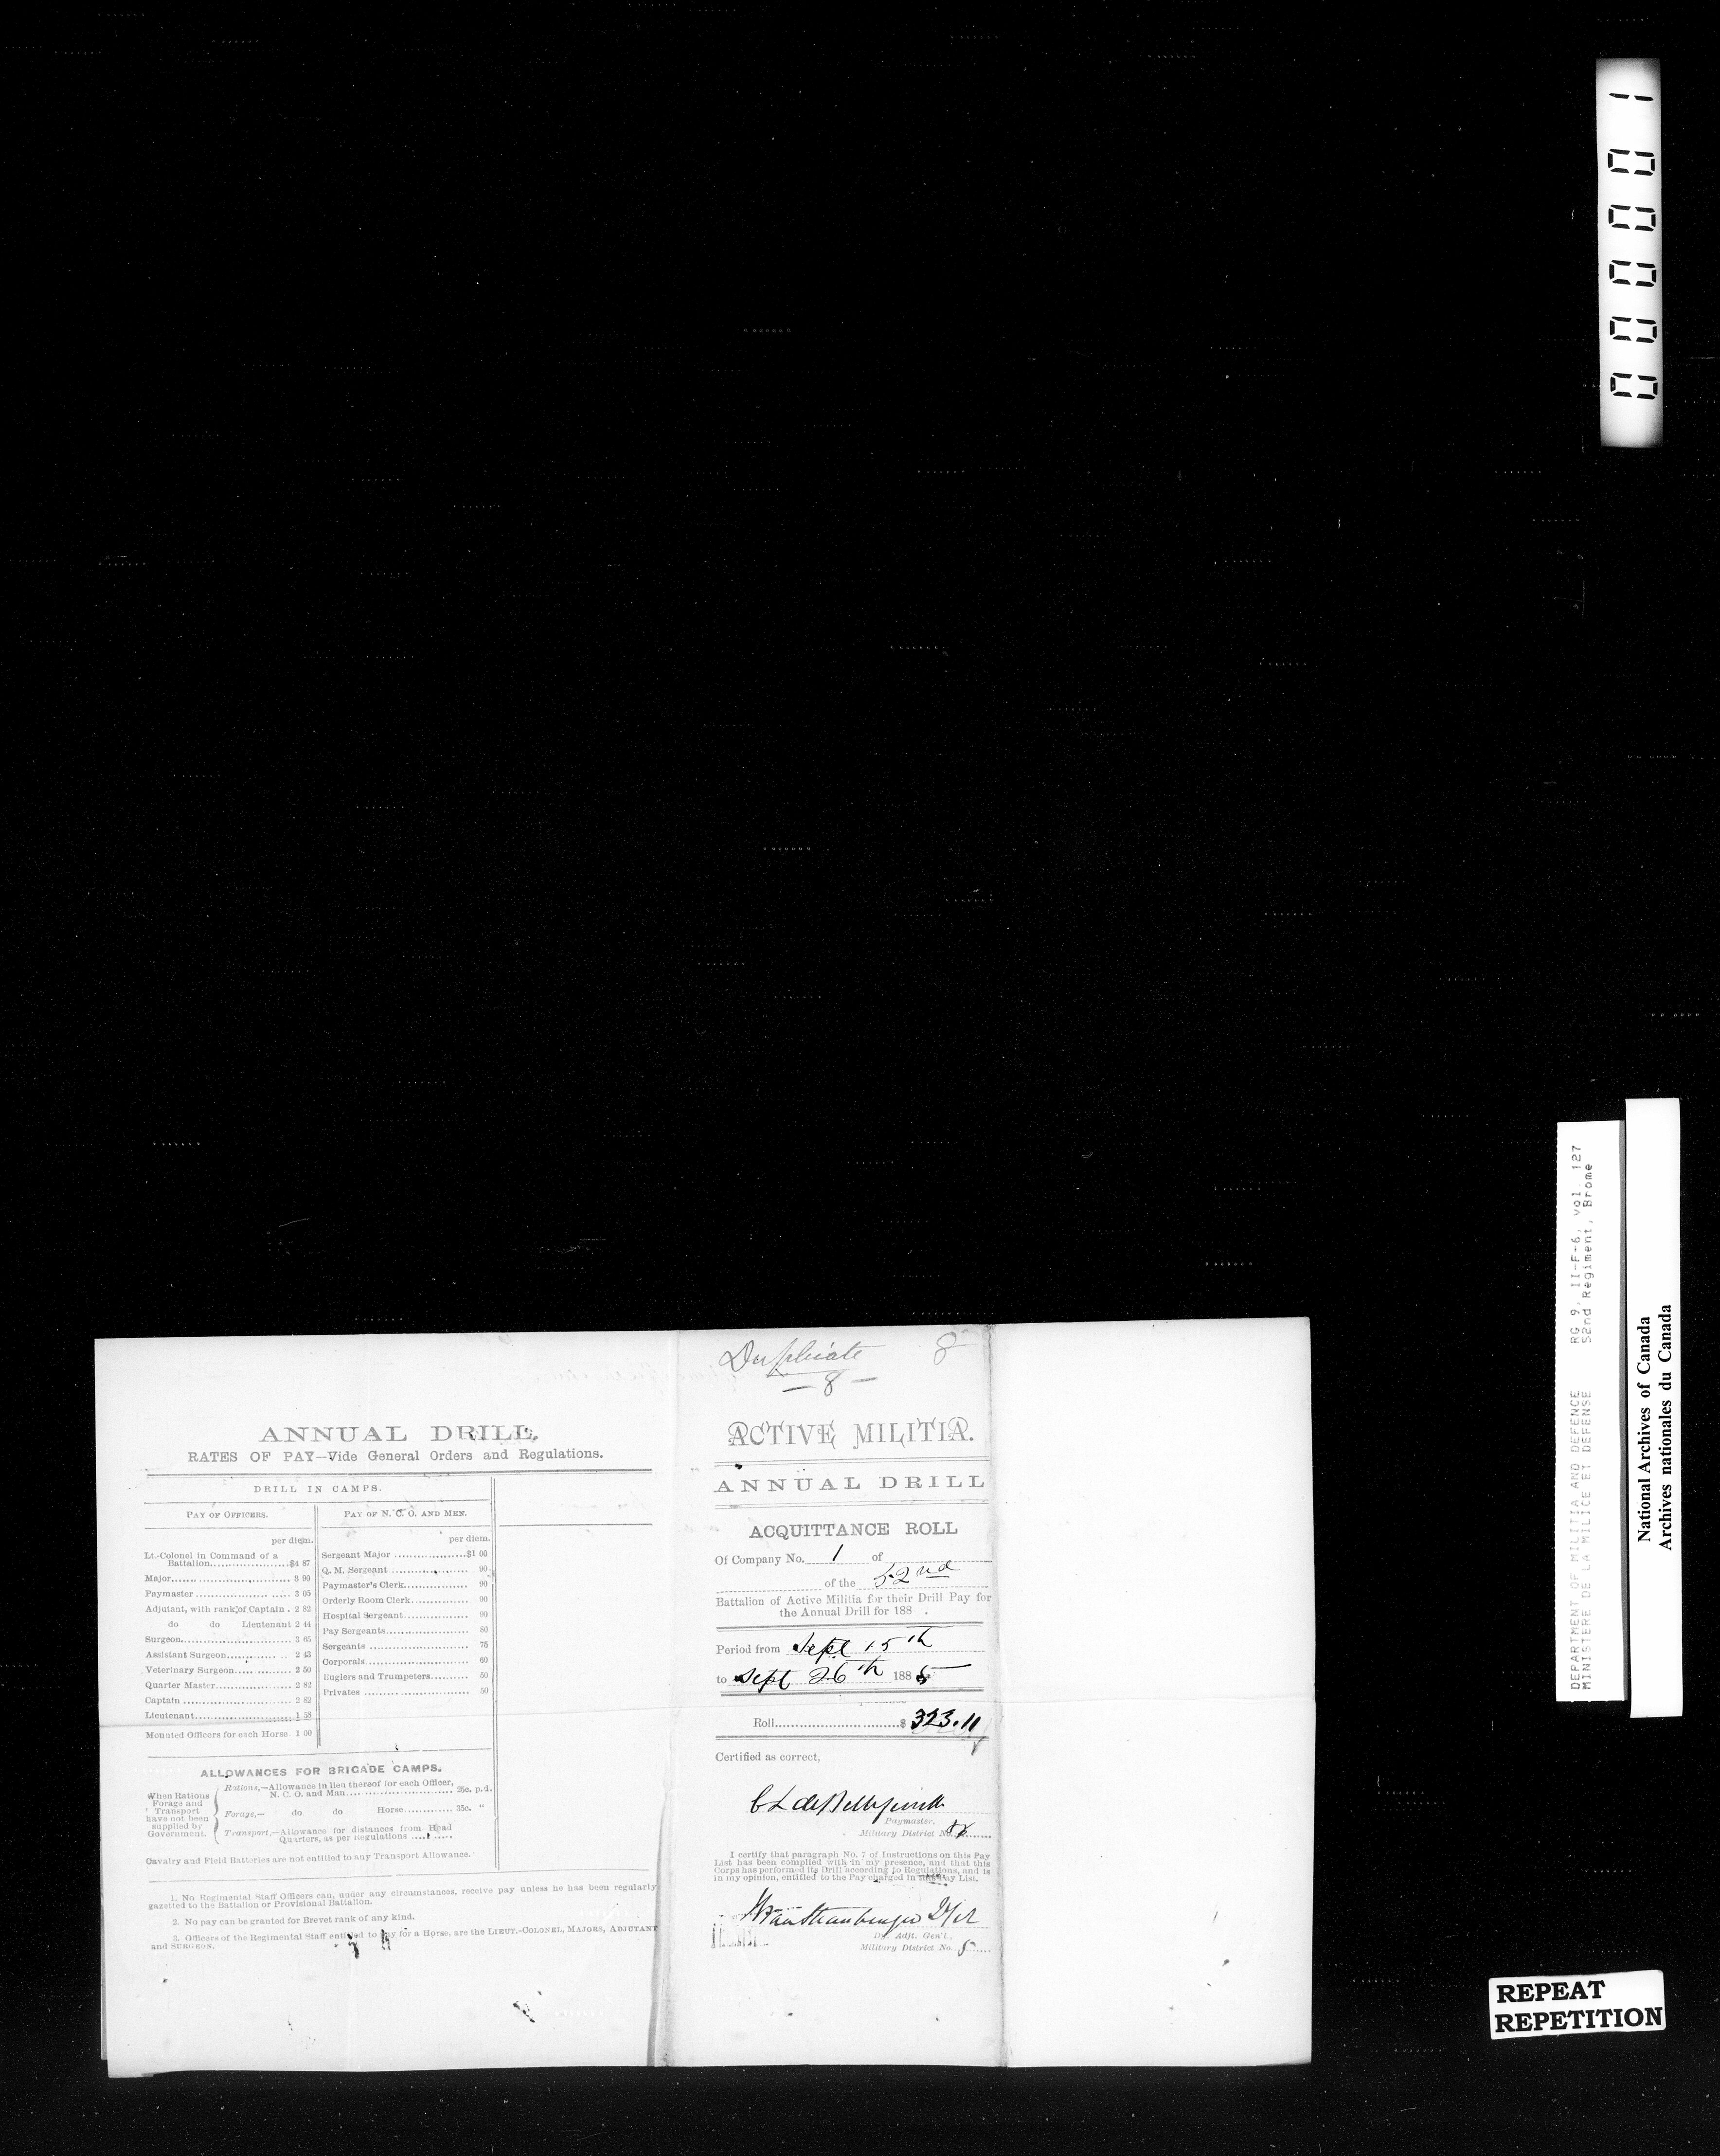 ANNUAL DRILL.
RATES OF PAY—Vide General Orders and Regulations.
DRILL IN CAMPS.
PAY OF OFFICERS.
per diem.
Lt.-Colonel in Command of a
Battalion..................$4 87
Major.............................. 3 90
Paymaster ........................ 3 05
Adjutant, with rank of Captain . 2 82
do do Lieutenant 2 44
Surgeon............................ 3 65
Assistant Surgeon............... 2 43
Veterinary Surgeon.............. 2 50
Quarter Master................... 2 82
Captain ........................... 2 82
Lieutenant......................... 1 58
Mounted Officers for each Horse 1 00
PAY OF N. C. O. AND MEN.
per diem.
Sergeant Major ..................$1 00
Q. M. Sergeant .................. 90
Paymaster's Clerk............... 90
Orderly Room Clerk.............. 90
Hospital Sergeant................ 90
Pay Sergeants..................... 80
Sergeants ......................... 75
Corporals ......................... 60
Buglers and Trumpeters......... 50
Privates ........................... 50
ALLOWANCES FOR BRIGADE CAMPS.
When Rations
Forage and
Transport
have not been
supplied by
Government.
Rations,—Allowance in lieu thereof for each Officer,
N. C. O. and Man........................ 25c. p.d.
Forage,— do do Horse............ 35c. "
Transport,—Allowance for distances from Head
Quarters, as per Regulations ..........
Cavalry and Field Batteries are not entitled to any Transport Allowance.
1. No Regimental Staff Officers can, under any circumstances, receive pay unless he has been regularly
gazetted to the Battalion or Provisional Battalion.
2. No pay can be granted for Brevet rank of any kind.
3. Officers of the Regimental Staff entitled to pay for a Horse, are the LIEUT.-COLONEL, MAJORS, ADJUTANT
and SURGEON.
Duplicate 8
— 8 —
ACTIVE MILITIA.
ANNUAL DRILL
ACQUITTANCE ROLL
Of Company No. 1 of
of the 52nd
Battalion of Active Militia for their Drill Pay for
the Annual Drill for 188 .
Period from Sept 15th
to Sept 26th 1885
Roll..............................$ 323.11
Certified as correct,
Paymaster,
Military District No.
I certify that paragraph No. 7 of Instructions on this Pay
List has been complied with in my presence, and that this
Corps has performed its Drill according to Regulations, and is
in my opinion, entitled to the Pay charged in this Pay List.
Dy. Adjt. Gen'l.,
Military District No. 5
000001
DEPARTMENT OF MILITIA AND DEFENCE RG 9, II-F-6, vol. 127
MINISTERE DE LA MILICE ET DEFENSE 52nd Regiment, Brome
National Archives of Canada
Archives nationales du Canada
REPEAT
REPETITION